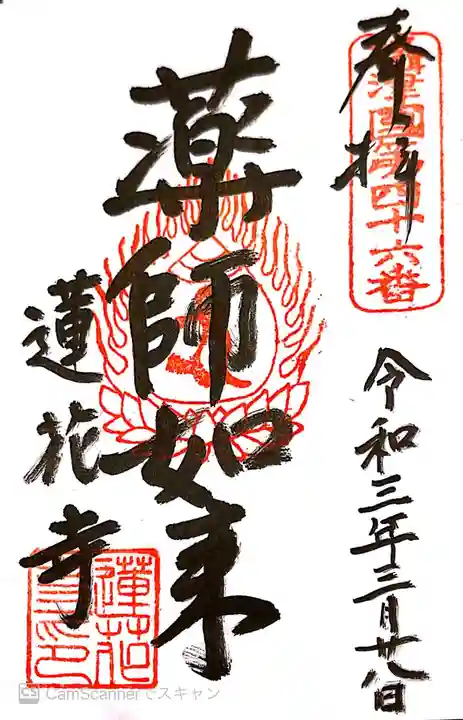 奉拝
攝津國第四十六番
令和三年三月廿八日
薬師如来
蓮花寺
蓮花寺印
CS CamScannerでスキャン